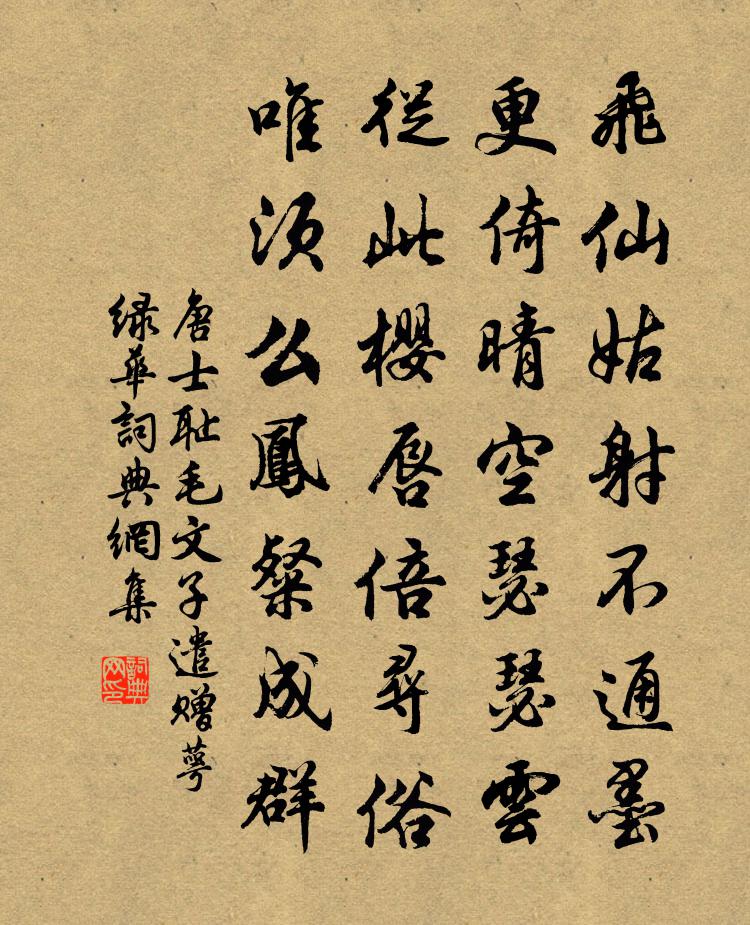 飛仙姑射不通墨
更倚晴空瑟瑟雲
從此櫻唇倍尋俗
唯須么鳳粲成群
唐士耻毛文子遣赠萼
緑華詞典網集
詞典网印